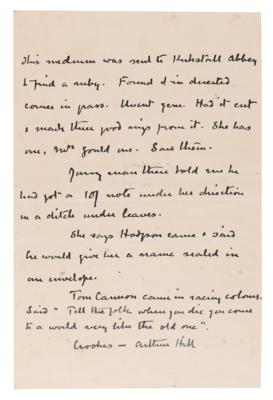 This medium was sent to Kirkstall Abbey
to find a ruby. Found it in directed
corner in grass. Uncut gem. Had it cut
& made three good rings from it. She has
one, Mrs Gould one. Saw them.
Young man there told me he
had got a 10/ note under her direction
in a ditch under leaves.
She says Hodgson came & said
he would give her a name sealed in
an envelope.
Tom Cannon came in racing colours.
Said "Tell the folk when you die you come
to a world very like the old one".
Crookes — Arthur Hill